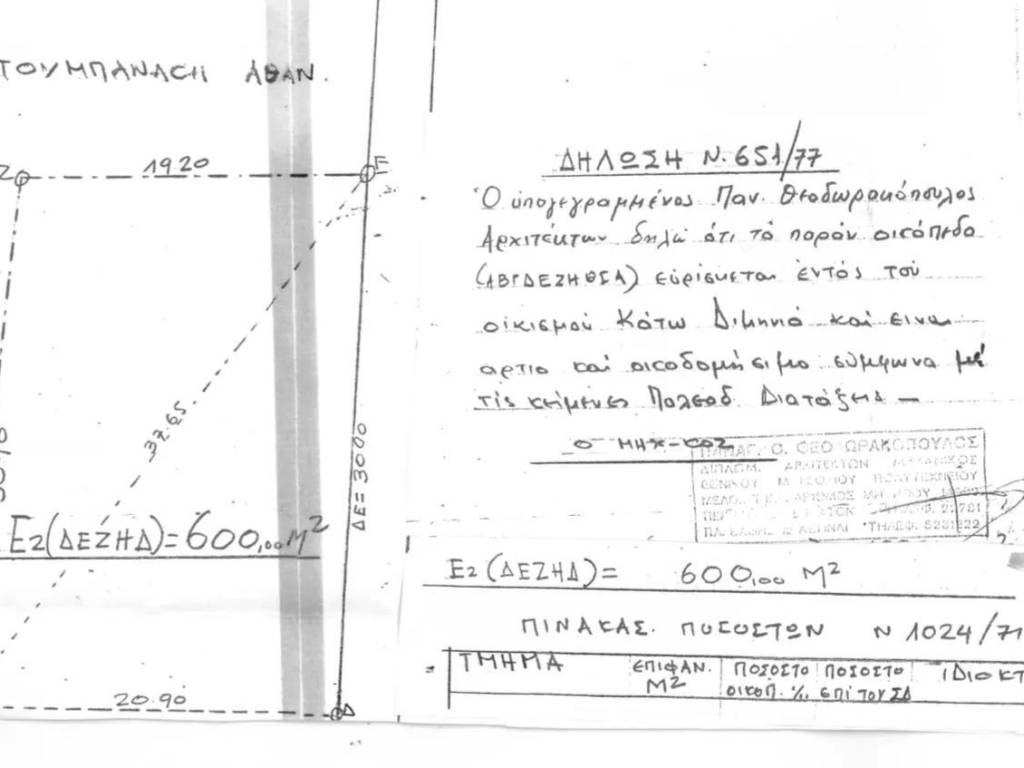 ΤΟΥΜΠΑΝΑΣΗ ΑΘΑΝ.
Ζ
1920
Ε
37.65
ΔΕ = 30.00
Ε2(ΔΕΖΗΔ)=600,00 Μ²
20.90
Δ
ΔΗΛΩΣΗ Ν. 651/77
Ὁ ὑπογεγραμμένος Παν. Θεοδωρακόπουλος
Αρχιτέκτων δηλῶ ὅτι τό παρόν οικόπεδο
(ΑΒΓΔΕΖΗΘΙΑ) εὑρίσκεται ἐντός τοῦ
οἰκισμοῦ Κάτω Διμηνιό και ειναι
αρτιο και οικοδομήσιμο σύμφωνα μέ
τίς κείμενες Πολεοδ. Διατάξεις —
Ο ΜΗΧ-ΚΟΣ
ΠΑΝΑΓ. Θ. ΘΕΟΔΩΡΑΚΟΠΟΥΛΟΣ
ΔΙΠΛΩΜ. ΑΡΧΙΤΕΚΤΩΝ ΜΗΧΑΝΙΚΟΣ
ΕΘΝΙΚΟΥ ΜΕΤΣΟΒΙΟΥ ΠΟΛΥΤΕΧΝΕΙΟΥ
ΜΕΛΟΣ Τ.Ε.Ε. ΑΡΙΘΜΟΣ ΜΗΤΡΩΟΥ
22781
ΑΘΗΝΑΙ ΤΗΛΕΦ. 5231222
Ε2(ΔΕΖΗΔ)= 600,00 Μ²
ΠΙΝΑΚΑΣ. ΠΟΣΟΣΤΩΝ Ν 1024/71
ΤΜΗΜΑ ΕΠΙΦΑΝ. ΠΟΣΟΣΤΟ ΠΟΣΟΣΤΟ ΙΔΙΟΚΤ
Μ2 ΟΙΚΟΠ. % ΕΠΙ ΤΟΥ ΣΔ